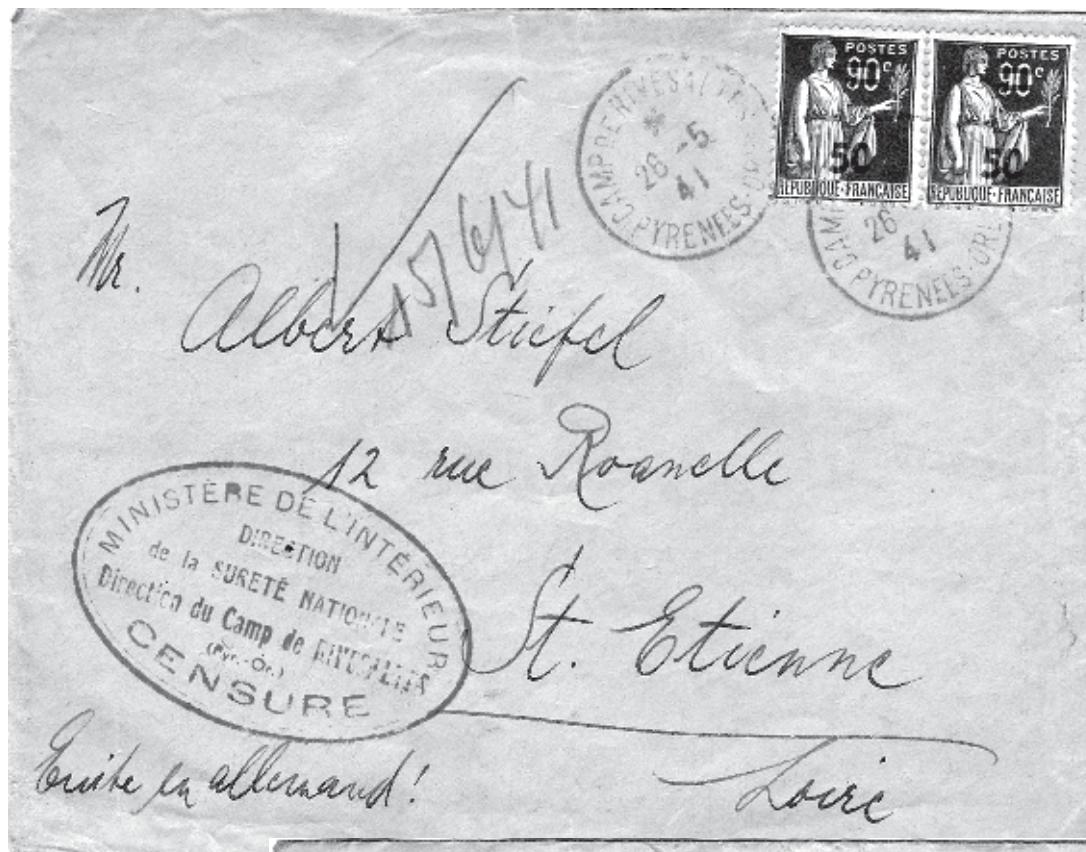 POSTES POSTES
90c 90c
50 50
RÉPUBLIQUE·FRANÇAISE RÉPUBLIQUE·FRANÇAISE
CAMP DE RIVESALTES
26 -5
41
PYRENEES-
CAMP
26
41
PYRENEES-ORles
15/6/41
Mr.
Albert Stiefel
12 rue Roanelle
St. Etienne
Loire
MINISTÈRE DE L'INTÉRIEUR
DIRECTION
de la SURETÉ NATIONALE
Direction du Camp de RIVESALTES
(Pyr.-Or.)
CENSURÉ
Ecrite en allemand!